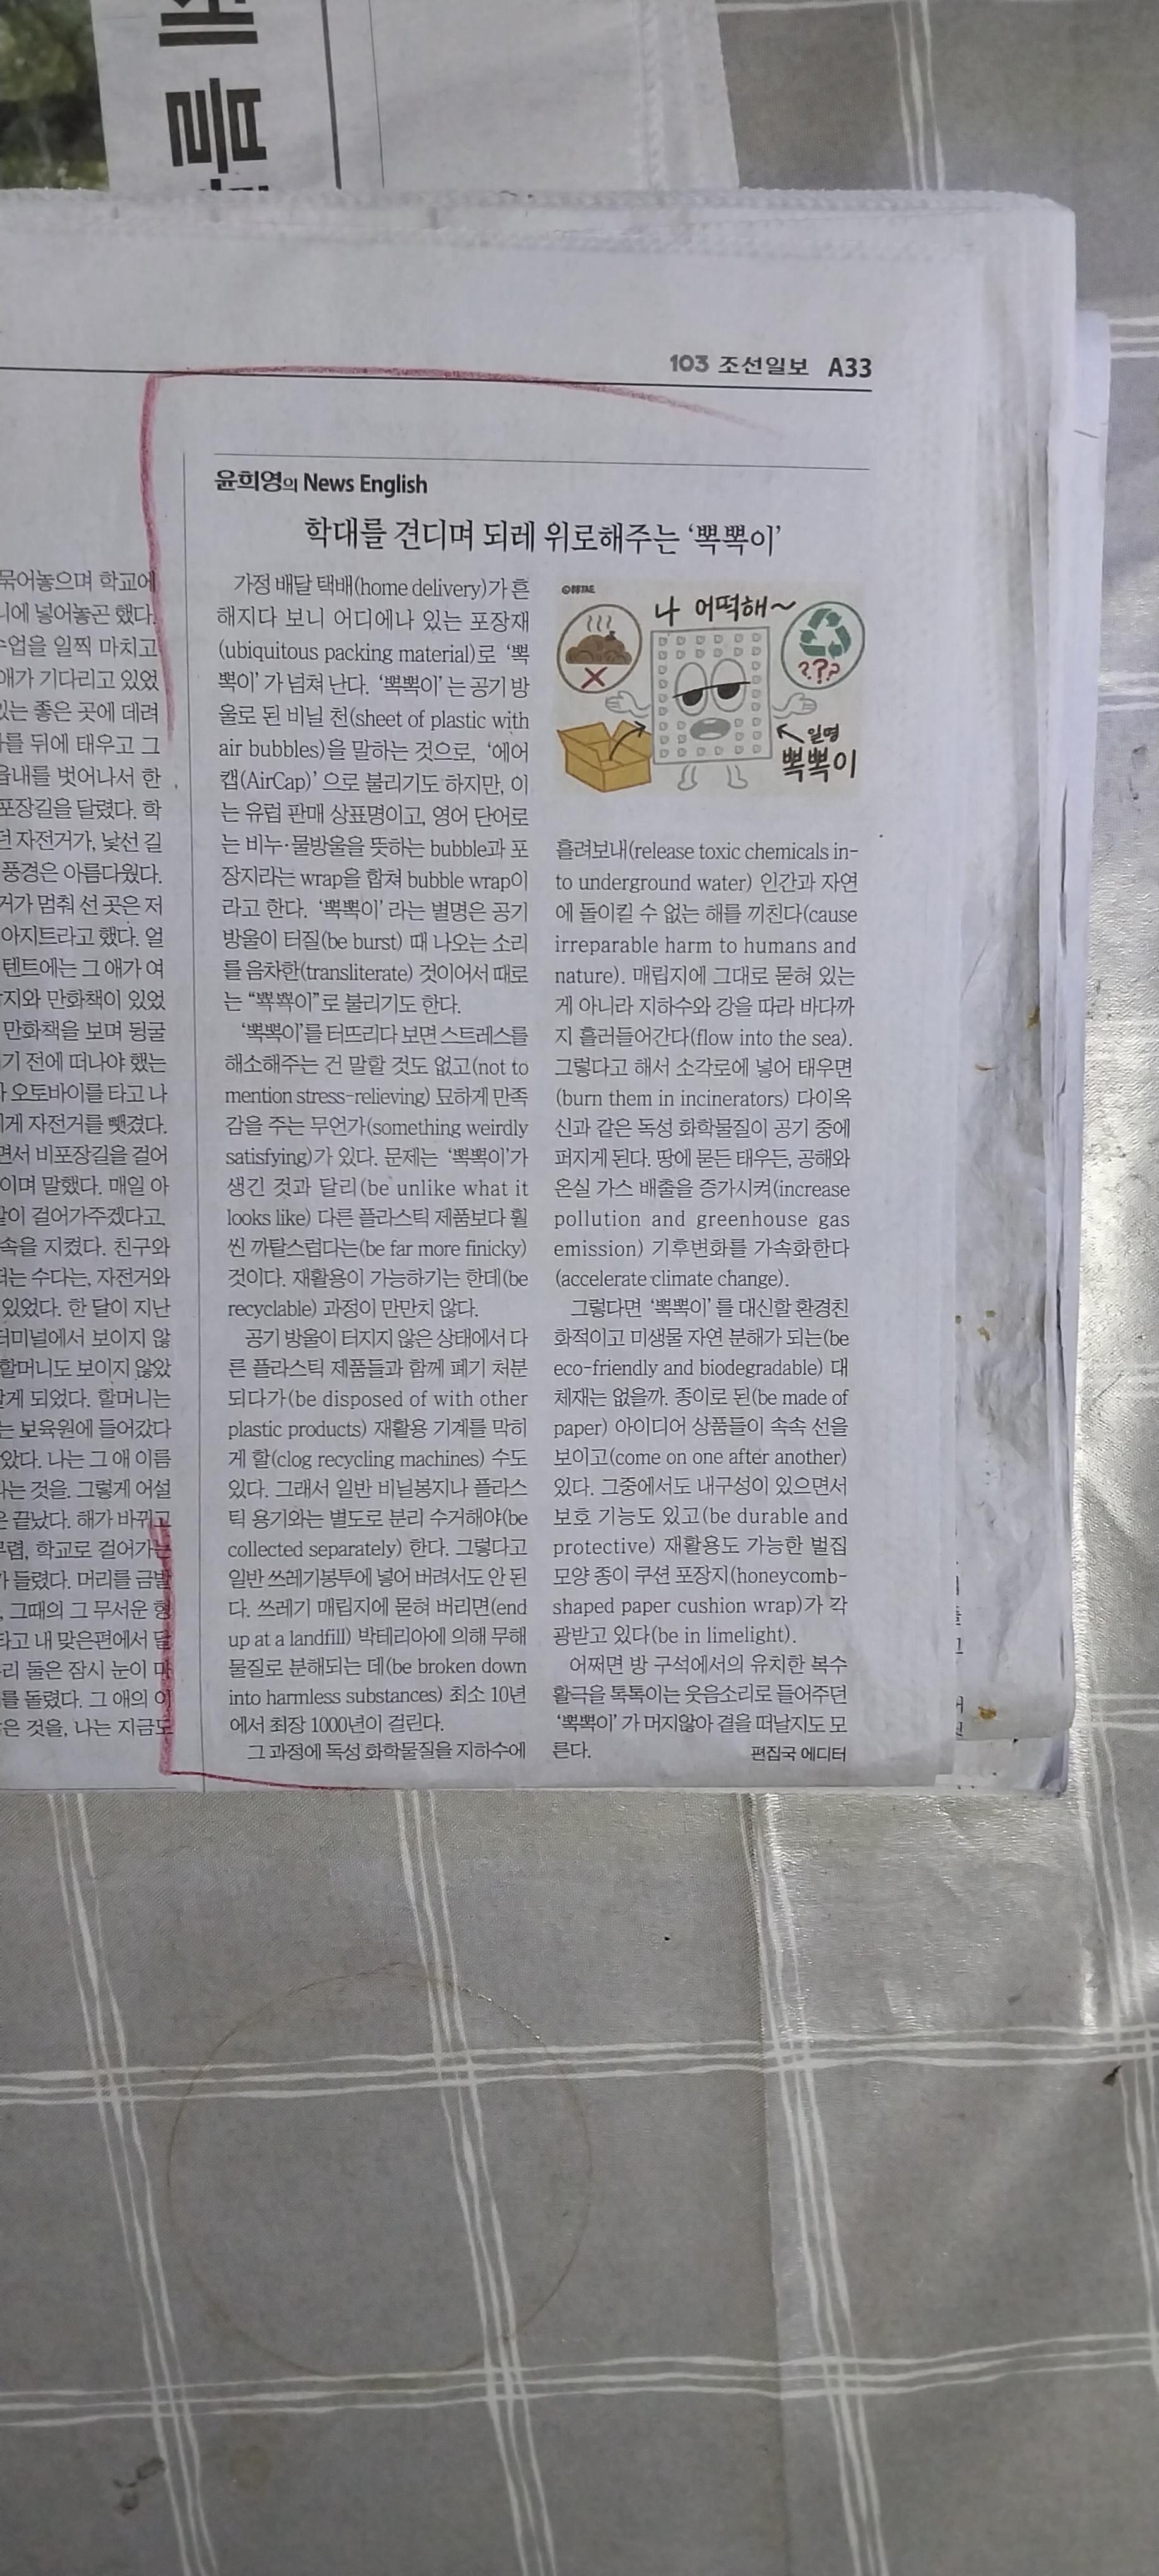 103 조선일보 A33
윤희영의 News English
학대를 견디며 되레 위로해주는 ‘뽁뽁이’
가정 배달 택배(home delivery)가 흔
해지다 보니 어디에나 있는 포장재
(ubiquitous packing material)로 ‘뽁
뽁이’가 넘쳐 난다. ‘뽁뽁이’는 공기 방
울로 된 비닐 천(sheet of plastic with
air bubbles)을 말하는 것으로, ‘에어
캡(AirCap)’으로 불리기도 하지만, 이
는 유럽 판매 상표명이고, 영어 단어로
는 비누·물방울을 뜻하는 bubble과 포
장지라는 wrap을 합쳐 bubble wrap이
라고 한다. ‘뽁뽁이’라는 별명은 공기
방울이 터질(be burst) 때 나오는 소리
를 음차한(transliterate) 것이어서 때로
는 “뽁뾱이”로 불리기도 한다.
‘뽁뽁이’를 터뜨리다 보면 스트레스를
해소해주는 건 말할 것도 없고(not to
mention stress-relieving) 묘하게 만족
감을 주는 무언가(something weirdly
satisfying)가 있다. 문제는 ‘뽁뽁이’가
생긴 것과 달리(be unlike what it
looks like) 다른 플라스틱 제품보다 훨
씬 까탈스럽다는(be far more finicky)
것이다. 재활용이 가능하기는 한데(be
recyclable) 과정이 만만치 않다.
공기 방울이 터지지 않은 상태에서 다
른 플라스틱 제품들과 함께 폐기 처분
되다가(be disposed of with other
plastic products) 재활용 기계를 막히
게 할(clog recycling machines) 수도
있다. 그래서 일반 비닐봉지나 플라스
틱 용기와는 별도로 분리 수거해야(be
collected separately) 한다. 그렇다고
일반 쓰레기봉투에 넣어 버려서도 안 된
다. 쓰레기 매립지에 묻혀 버리면(end
up at a landfill) 박테리아에 의해 무해
물질로 분해되는 데(be broken down
into harmless substances) 최소 10년
에서 최장 1000년이 걸린다.
그 과정에 독성 화학물질을 지하수에
©BBTAE
나 어떡해~
???
일명
뽁뽁이
흘려보내(release toxic chemicals in-
to underground water) 인간과 자연
에 돌이킬 수 없는 해를 끼친다(cause
irreparable harm to humans and
nature). 매립지에 그대로 묻혀 있는
게 아니라 지하수와 강을 따라 바다까
지 흘러들어간다(flow into the sea).
그렇다고 해서 소각로에 넣어 태우면
(burn them in incinerators) 다이옥
신과 같은 독성 화학물질이 공기 중에
퍼지게 된다. 땅에 묻든 태우든, 공해와
온실 가스 배출을 증가시켜(increase
pollution and greenhouse gas
emission) 기후변화를 가속화한다
(accelerate climate change).
그렇다면 ‘뽁뽁이’를 대신할 환경친
화적이고 미생물 자연 분해가 되는(be
eco-friendly and biodegradable) 대
체재는 없을까. 종이로 된(be made of
paper) 아이디어 상품들이 속속 선을
보이고(come on one after another)
있다. 그중에서도 내구성이 있으면서
보호 기능도 있고(be durable and
protective) 재활용도 가능한 벌집
모양 종이 쿠션 포장지(honeycomb-
shaped paper cushion wrap)가 각
광받고 있다(be in limelight).
어쩌면 방 구석에서의 유치한 복수
활극을 톡톡이는 웃음소리로 들어주던
‘뽁뽁이’가 머지않아 곁을 떠날지도 모
른다.
편집국 에디터
묶어놓으며 학교에
니에 넣어놓곤 했다.
수업을 일찍 마치고
애가 기다리고 있었
있는 좋은 곳에 데려
를 뒤에 태우고 그
읍내를 벗어나서 한
포장길을 달렸다. 학
던 자전거가, 낯선 길
풍경은 아름다웠다.
거가 멈춰 선 곳은 저
아지트라고 했다. 얼
텐트에는 그 애가 여
지와 만화책이 있었
만화책을 보며 뒹굴
기 전에 떠나야 했는
오토바이를 타고 나
에게 자전거를 뺏겼다.
면서 비포장길을 걸어
이며 말했다. 매일 아
같이 걸어가주겠다고.
속을 지켰다. 친구와
떠는 수다는, 자전거와
있었다. 한 달이 지난
터미널에서 보이지 않
할머니도 보이지 않았
알게 되었다. 할머니는
는 보육원에 들어갔다
았다. 나는 그 애 이름
라는 것을. 그렇게 어설
은 끝났다. 해가 바뀌고
무렵, 학교로 걸어가는
가 들렸다. 머리를 금발
, 그때의 그 무서운 형
타고 내 맞은편에서 달
리 둘은 잠시 눈이 마
를 돌렸다. 그 애의 이
은 것을, 나는 지금도